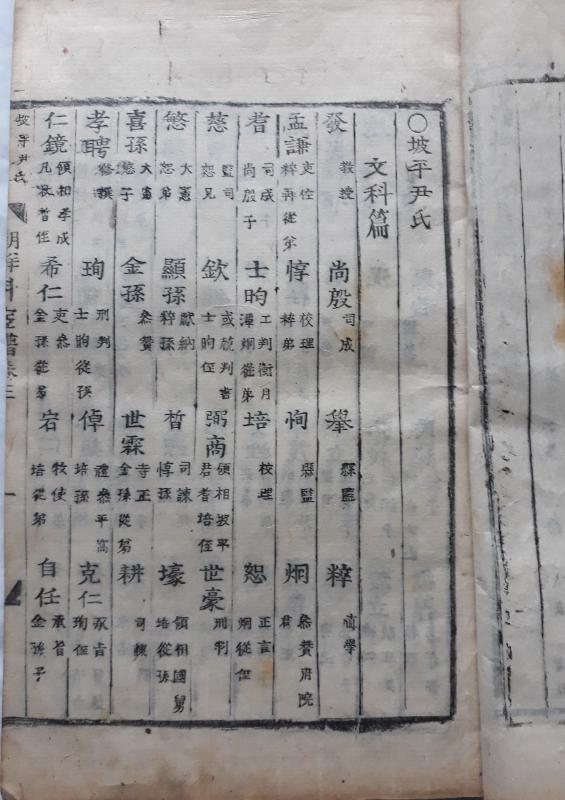 ○坡平尹氏
文科篇
發 教授 尚殷 司成 舉 縣監 粹 直學
孟謙 吏佐 粹再從弟 惇 校理 粹弟 恂 縣監 炯 叅贊府院君
耆 司成 尚殷子 士昀 工判 從弟 培 校理 恕 正言 炯從侄
慈 監司 恕兄 欽 判書 士昀侄 弼商 領相坡平君 耆培侄 世豪 刑判
慜 大憲 恕弟 顯孫 獻納 粹孫 晳 司諫 惇孫 壕 領相國舅 培從孫
喜孫 大憲 慜子 金孫 叅贊 世霖 寺正 金孫從弟 耕 司
孝聘 修撰 珣 刑判 士昀從孫 倬 禮叅平窩 培孫 克仁 承旨 珣侄
仁鏡 領相孝成 侄 希仁 吏叅 金孫從弟 宕 牧使 培從弟 自任 承旨 金孫子
坡平尹氏 科 譜 一